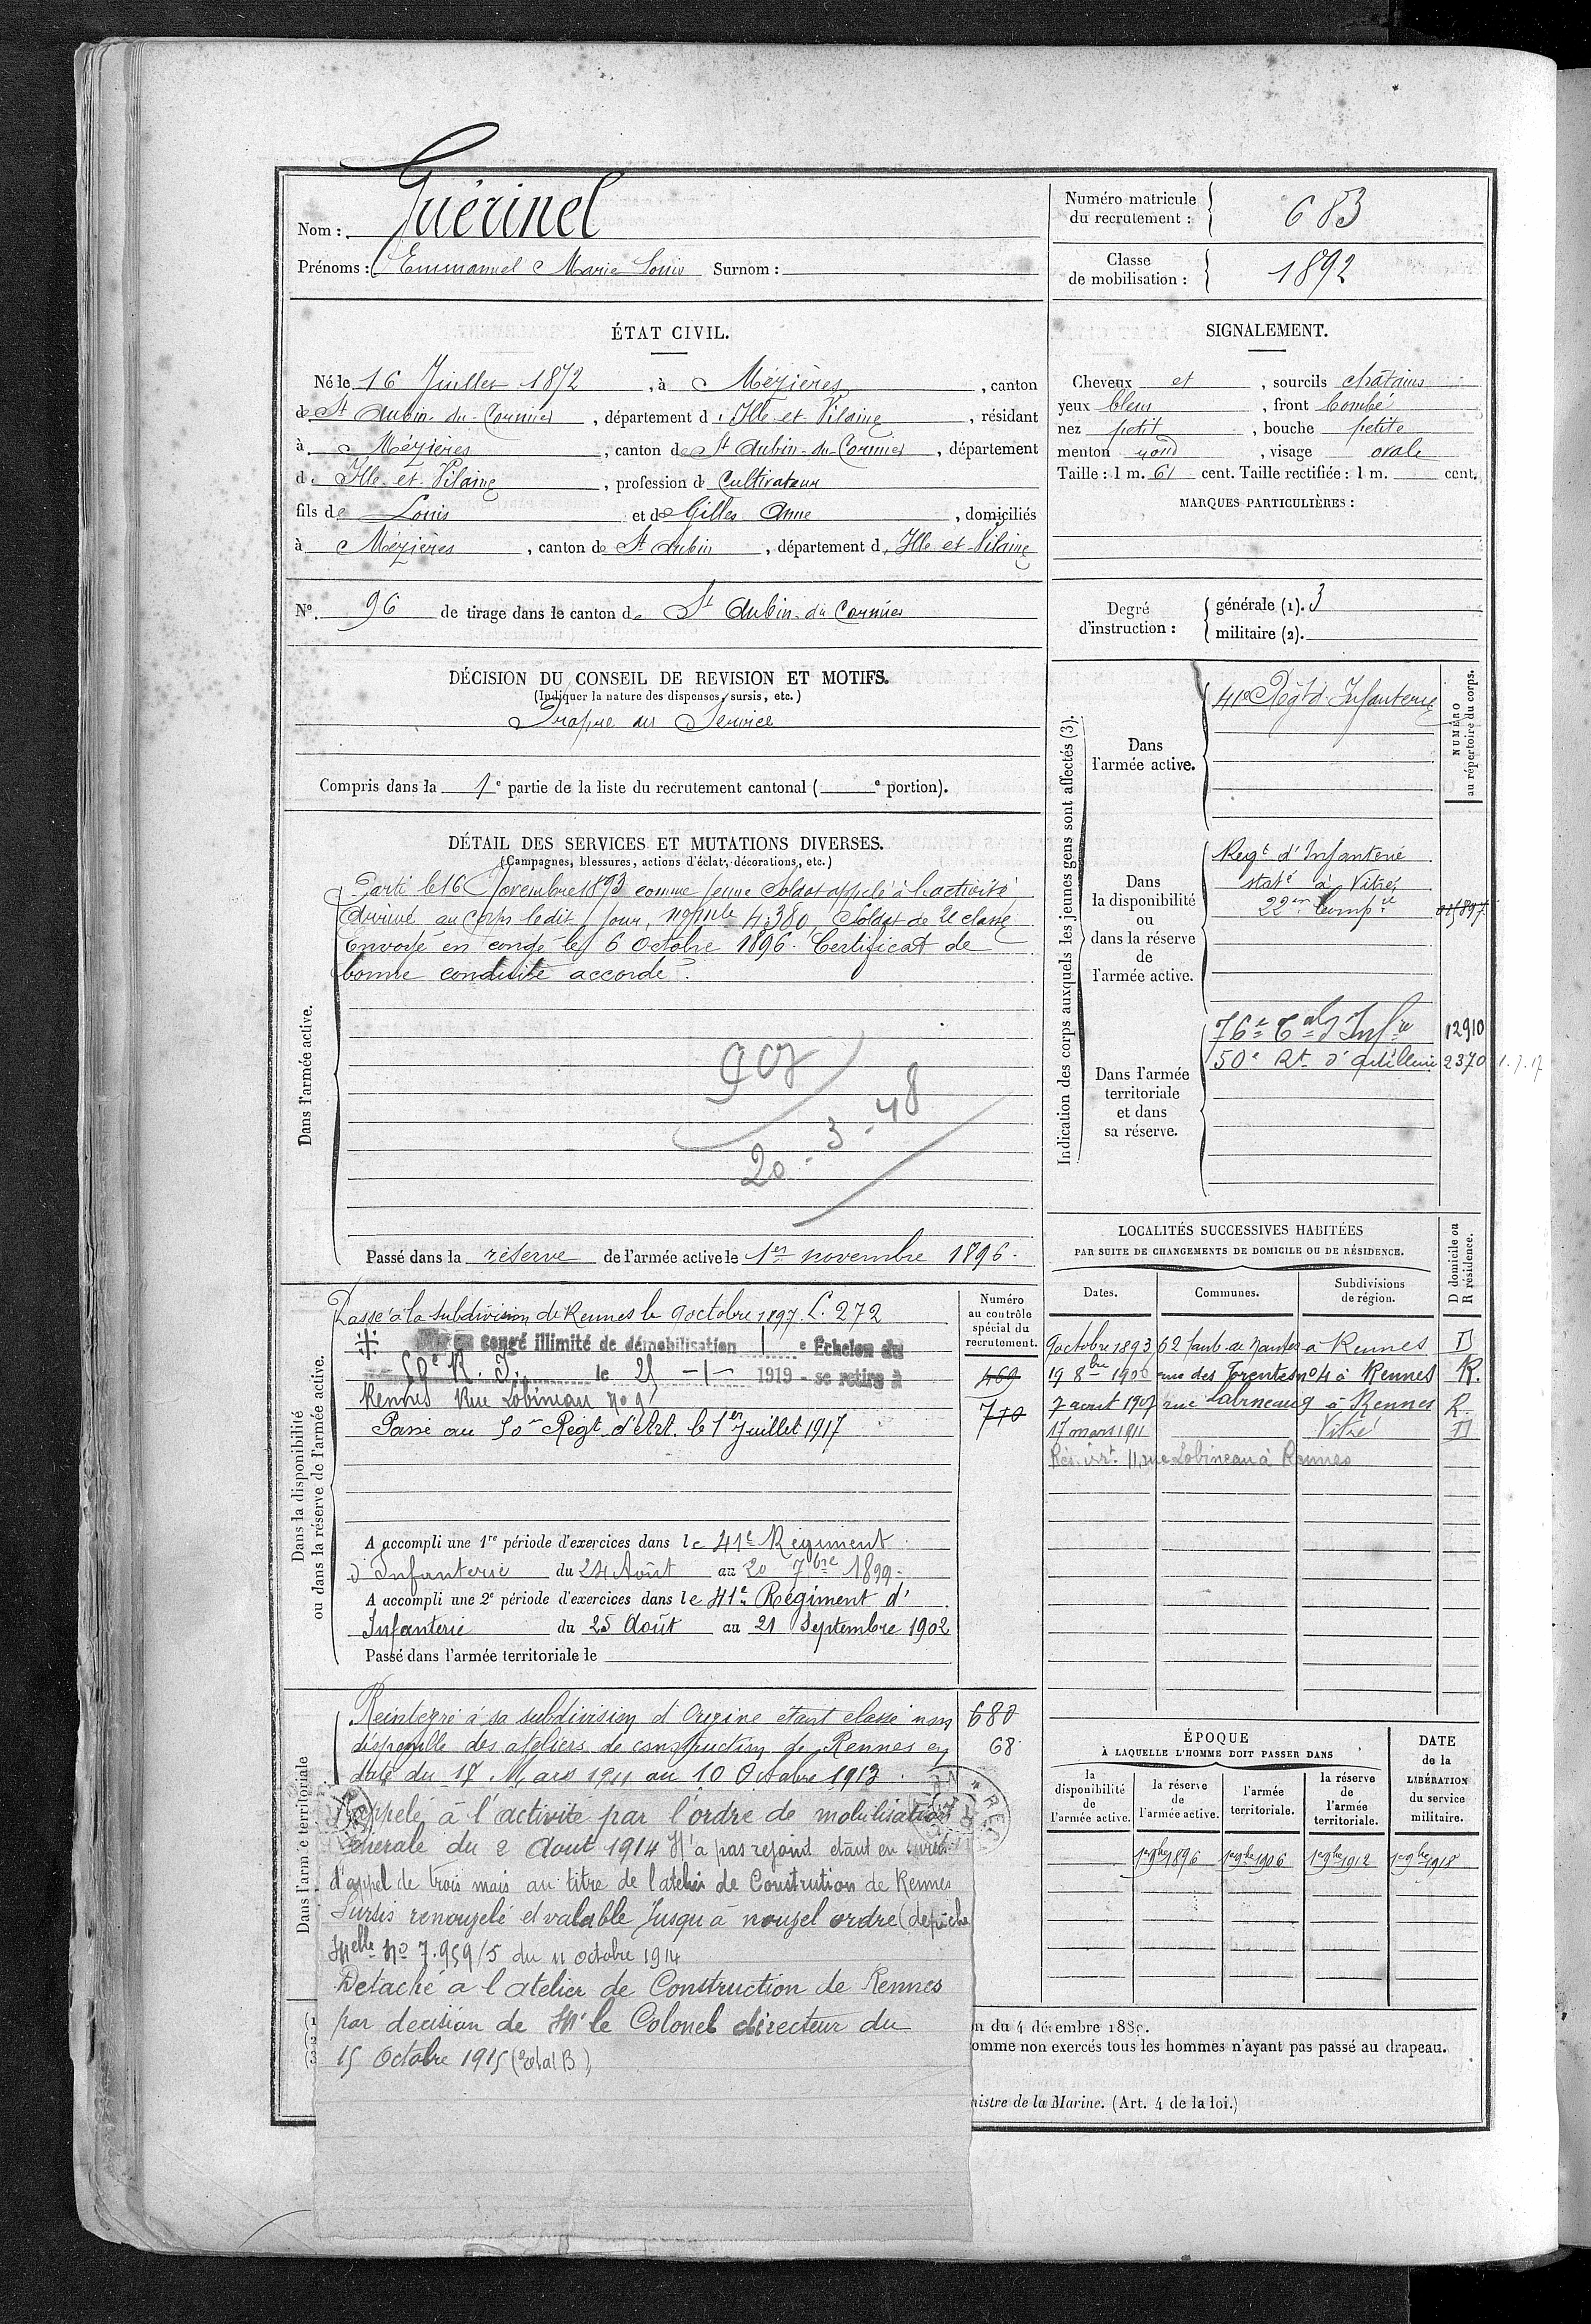 Nom : Guérinel
Prénoms : Emmanuel Marie Louis Surnom :
Numéro matricule du recrutement : 683
Classe de mobilisation : 1892
ÉTAT CIVIL.
Né le 16 Juillet 1872, à Mézières, canton
de St Aubin-du-Cormier, département d'Ille-et-Vilaine, résidant
à Mézières, canton de St Aubin-du-Cormier, département
d'Ille-et-Vilaine, profession de Cultivateur
fils de Louis et de Gilles Anne, domiciliés
à Mézières, canton de St Aubin, département d'Ille et Vilaine
N° 96 de tirage dans le canton de St Aubin-du Cormier
SIGNALEMENT.
Cheveux et, sourcils châtains
yeux bleus, front bombé
nez petit, bouche petite
menton rond, visage ovale
Taille : 1 m. 61 cent. Taille rectifiée : 1 m. cent.
MARQUES PARTICULIÈRES :
Degré d'instruction : générale (1). 3
militaire (2).
DÉCISION DU CONSEIL DE REVISION ET MOTIFS.
(Indiquer la nature des dispenses, sursis, etc.)
Propre au Service
Compris dans la 1e partie de la liste du recrutement cantonal ( e portion).
DÉTAIL DES SERVICES ET MUTATIONS DIVERSES.
(Campagnes, blessures, actions d'éclat, décorations, etc.)
Dans l'armée active.
Parti le 16 Novembre 1893 comme jeune Soldat appelé à l'activité
Arrivé au Corps ledit jour, no mle 4380 Soldat de 2e classe
Envoyé en congé le 6 Octobre 1896. Certificat de
bonne conduite accordé.
20-3-48
Passé dans la réserve de l'armée active le 1er novembre 1896.
Indication des corps auxquels les jeunes gens sont affectés (3).
NUMÉRO au répertoire du corps.
Dans l'armée active.
41e Régt d'Infanterie
Dans la disponibilité ou dans la réserve de l'armée active.
Regt d'Infanterie
staté à Vitré
Dans l'armée territoriale et dans sa réserve.
76e tal d'Infie 12910
50e Rt d'artillerie 2370 1.7.17
LOCALITÉS SUCCESSIVES HABITÉES
PAR SUITE DE CHANGEMENTS DE DOMICILE OU DE RÉSIDENCE.
D domicile ou R résidence.
Dates. Communes. Subdivisions de région.
9 octobre 1893 62 faub. de Nantes à Rennes D
19 8bre 1900 rue des no 4 à Rennes R.
7 aout 1907 rue 9 à Rennes R.
17 mars 1911 Vitré D
11 rue Lobineau à Rennes
Dans la disponibilité ou dans la réserve de l'armée active.
Numéro au contrôle spécial du recrutement.
Passé à la subdivision de Rennes le 9 octobre 1897. L. 272
congé illimité de démobilisation 1 e Echelon du
50e R. I. le 25 - 1 - 1919 - se retire à
Rennes Rue Lobineau no 9
469
710
Passé au 50e Régt d'Art. le 1er Juillet 1917
A accompli une 1re période d'exercices dans le 41e Régiment
d'Infanterie du 24 Août au 20 7bre 1899.
A accompli une 2e période d'exercices dans le 41e Régiment d'
Infanterie du 25 Août au 21 Septembre 1902
Passé dans l'armée territoriale le
Dans l'armée territoriale
Réintégré à sa subdivision d'Origine étant classé non 680
disponible des ateliers de construction de Rennes en 68
date du 17 Mars 1911 au 10 Octobre 1913.
Rappelé à l'activité par l'ordre de mobilisation
Générale du 2 Aout 1914 N'a pas rejoint étant en sursis
d'appel de trois mois au titre de l'atelier de Constrution de Rennes
Sursis renouvelé et valable Jusqu'à nouvel ordre (dépêche
Melle No 7.959/5 du 11 octobre 1914
Détaché a l'atelier de Construction de Rennes
par decision de Mr le Colonel directeur du
15 Octobre 1915 (état B)
ÉPOQUE
À LAQUELLE L'HOMME DOIT PASSER DANS
la disponibilité de l'armée active. la réserve de l'armée active. l'armée territoriale. la réserve de l'armée territoriale.
DATE de la LIBÉRATION du service militaire.
1er 9bre 1896 1er 9bre 1906 1er 9bre 1912 1er 9bre 1918
n du 4 décembre 1889.
omme non exercés tous les hommes n'ayant pas passé au drapeau.
nistre de la Marine. (Art. 4 de la loi.)